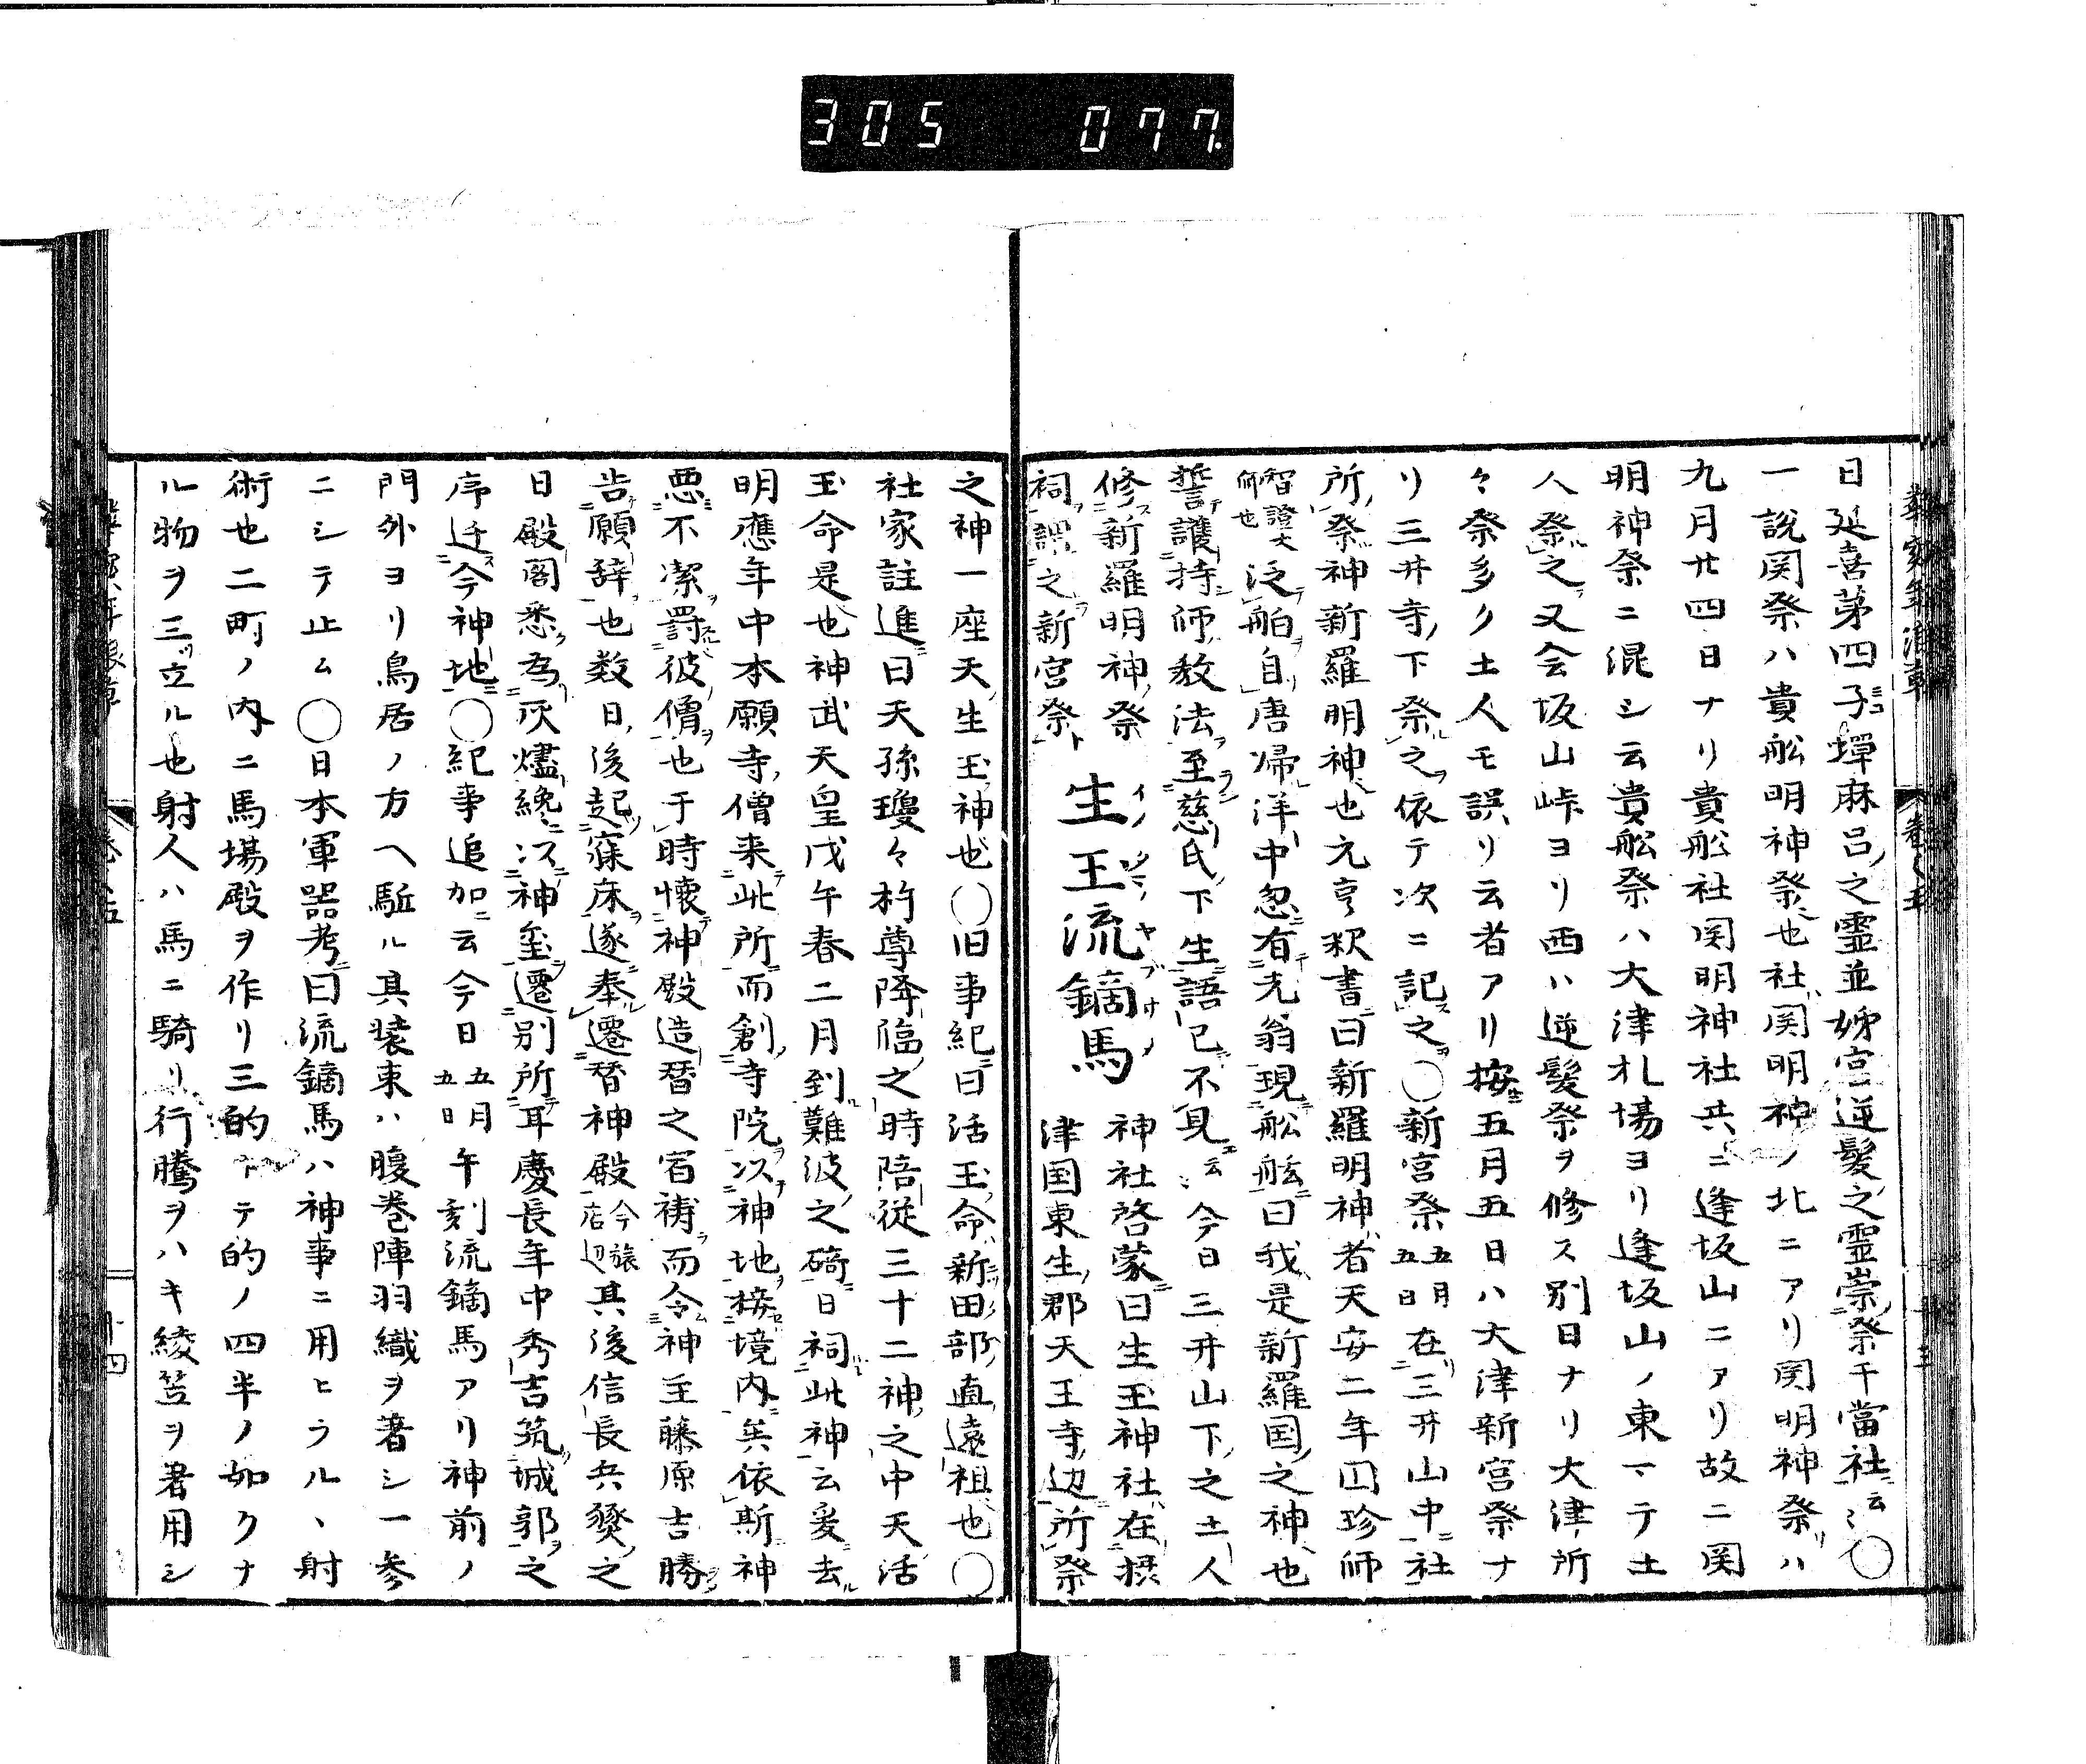 305 077.
日延喜第四子蟬麻呂之霊並姉宮逆髪之霊崇祭于當社云〻〇
一説関祭ハ貴舩明神祭也社関明神ノ北ニアリ関明神祭ハ
九月廿四日ナリ貴舩社関明神社共ニ逢坂山ニアリ故ニ関
明神祭ニ混シ云貴舩祭ハ大津札場ヨリ逢坂山ノ東マテ土
人祭之又会坂山峠ヨリ西ハ逆髪祭ヲ修ス別日ナリ大津所
々祭多ク土人モ誤リ云者アリ按五月五日ハ大津新宮祭ナ
リ三井寺下祭之依テ次ニ記之〇新宮祭五月五日在三井山中社
所祭神新羅明神也元亨釈書曰新羅明神者天安二年円珍師
智證大師也泛舶自唐帰洋中忽有老翁現舩舷曰我是新羅国之神也
誓護持師教法至慈氏下生語已不見云〻今日三井山下之土人
修新羅明神祭
祠謂之新宮祭ト
生玉流鏑馬
イノシヤブサメ
神社啓蒙曰生玉神社在摂
津国東生郡天王寺辺所祭
之神一座天生玉神也〇旧事紀曰活玉命新田部直遠祖也〇
社家註進曰天孫瓊々杵尊降臨之時陪従三十二神之中天活
玉命是也神武天皇戊午春二月到難波之碕日祠此神云爰去
明應年中本願寺僧来此所而創寺院以神地按境内矣依斯神
悪不潔罰彼僧也于時懐神殿造替之宿祷而令神主藤原吉勝
告願辞也数日後起寐床遂奉遷替神殿今旅店辺其後信長兵燹之
日殿閣悉為灰燼纔以神璽遷別所耳慶長年中秀吉筑城郭之
序迁今神地〇紀事追加ニ云今日五月五日午刻流鏑馬アリ神前ノ
門外ヨリ鳥居ノ方ヘ駈ル其装束ハ腹巻陣羽織ヲ著シ一参
ニシテ止ム〇日本軍器考曰流鏑馬ハ神事ニ用ヒラルヽ射
術也二町ノ内ニ馬場殿ヲ作リ三的トテ的ノ四半ノ如クナ
ル物ヲ三ツ立ル也射人ハ馬ニ騎リ行騰ヲハキ綾笠ヲ著用シ